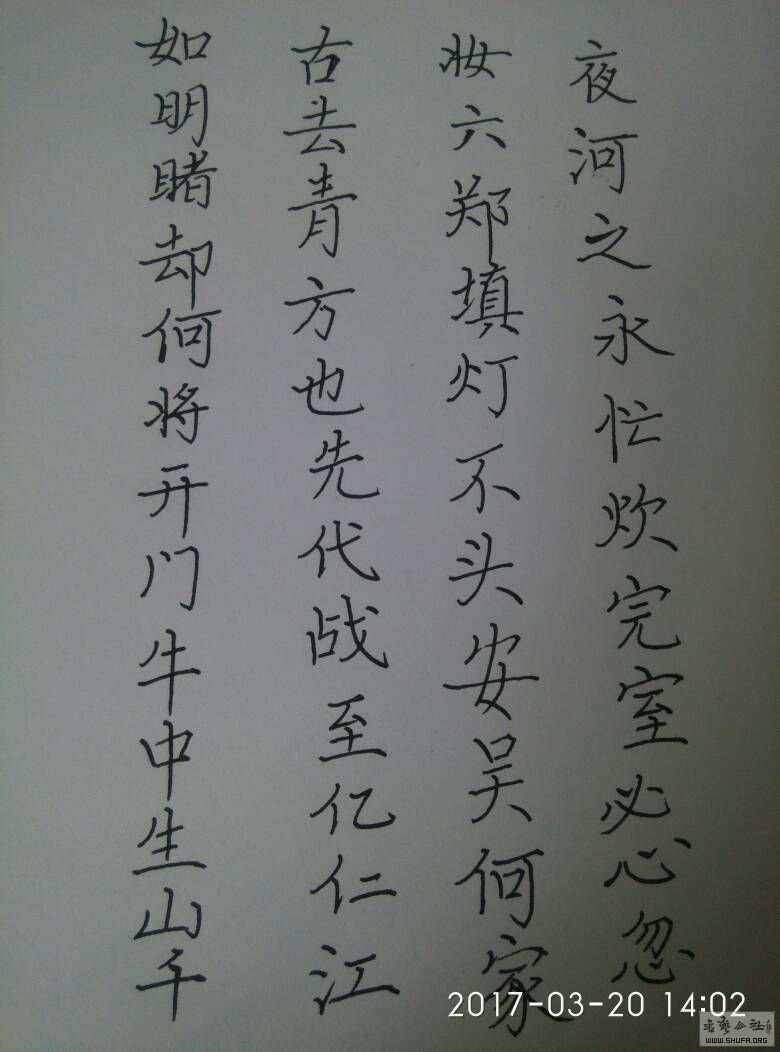 夜河之永忙炊完室必心忽
妆六郑填灯不头安吴何家
古去青方也先代战至亿仁江
如明睹却何将开门牛中生山千
2017-03-20 14:02
WWW.SHUFA.ORG